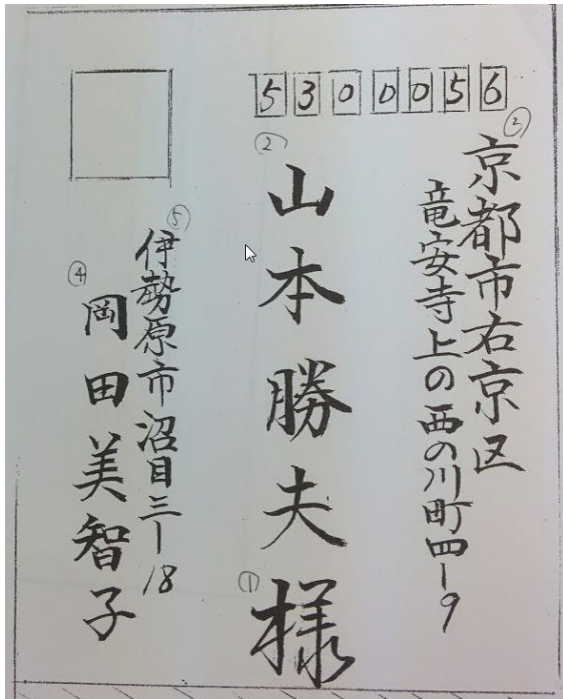 5300056
③
京都市右京区
竜安寺上の西の川町四-9
②
山本勝夫様
①
⑤
伊勢原市沼目三-18
④
岡田美智子